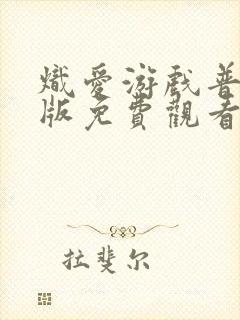 熾愛游戲普
版免費觀看
拉斐尔